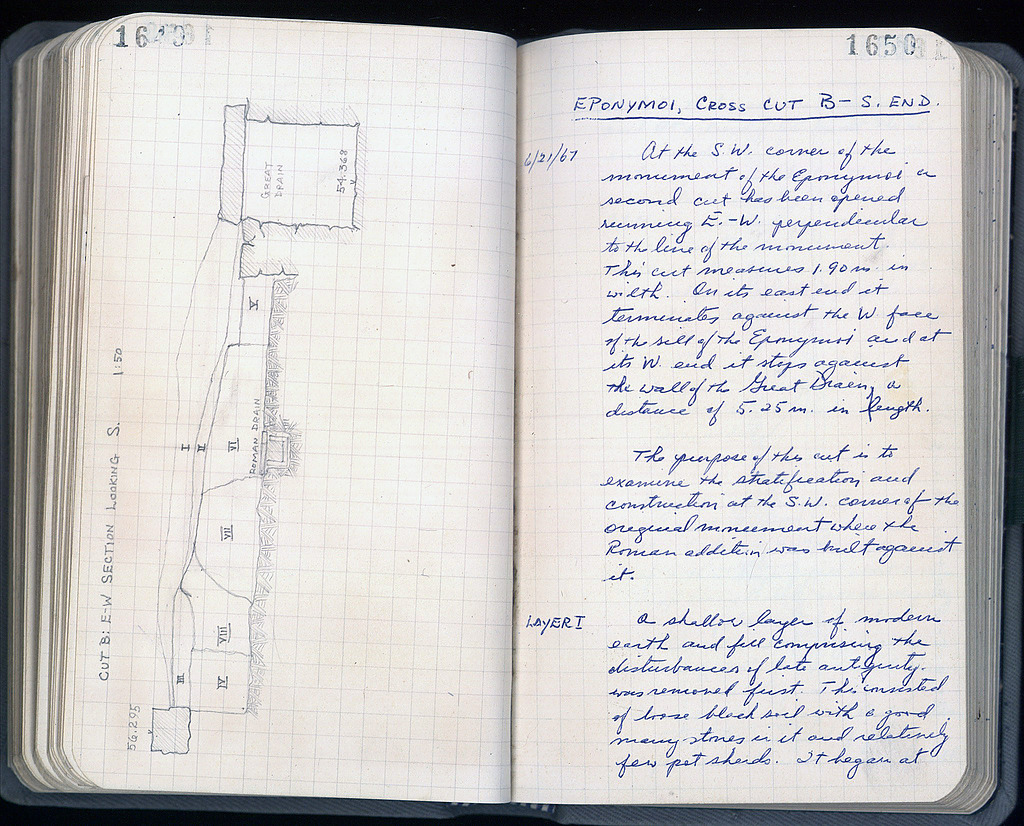 1649
CUT B: E-W SECTION LOOKING S. 1:50
56.295
GREAT
DRAIN
54.368
V
I
II
VI
ROMAN DRAIN
VII
VIII
III
IV
1650
EPONYMOI, CROSS CUT B - S. END.
6/21/67
At the S.W. corner of the
monument of the Eponymoi a
second cut has been opened
running E.-W. perpendicular
to the line of the monument.
This cut measures 1.90 m. in
width. On its east end it
terminates against the W face
of the sill of the Eponymoi and at
its W. end it stops against
the wall of the Great Drain, a
distance of 5.25 m. in length.
The purpose of this cut is to
examine the stratification and
construction at the S.W. corner of the
original monument where the
Roman addition was built against
it.
LAYER I
A shallow layer of modern
earth and fill comprising the
disturbances of late antiquity
was removed first. This consisted
of loose black soil with a good
many stones in it and relatively
few pot sherds. It began at